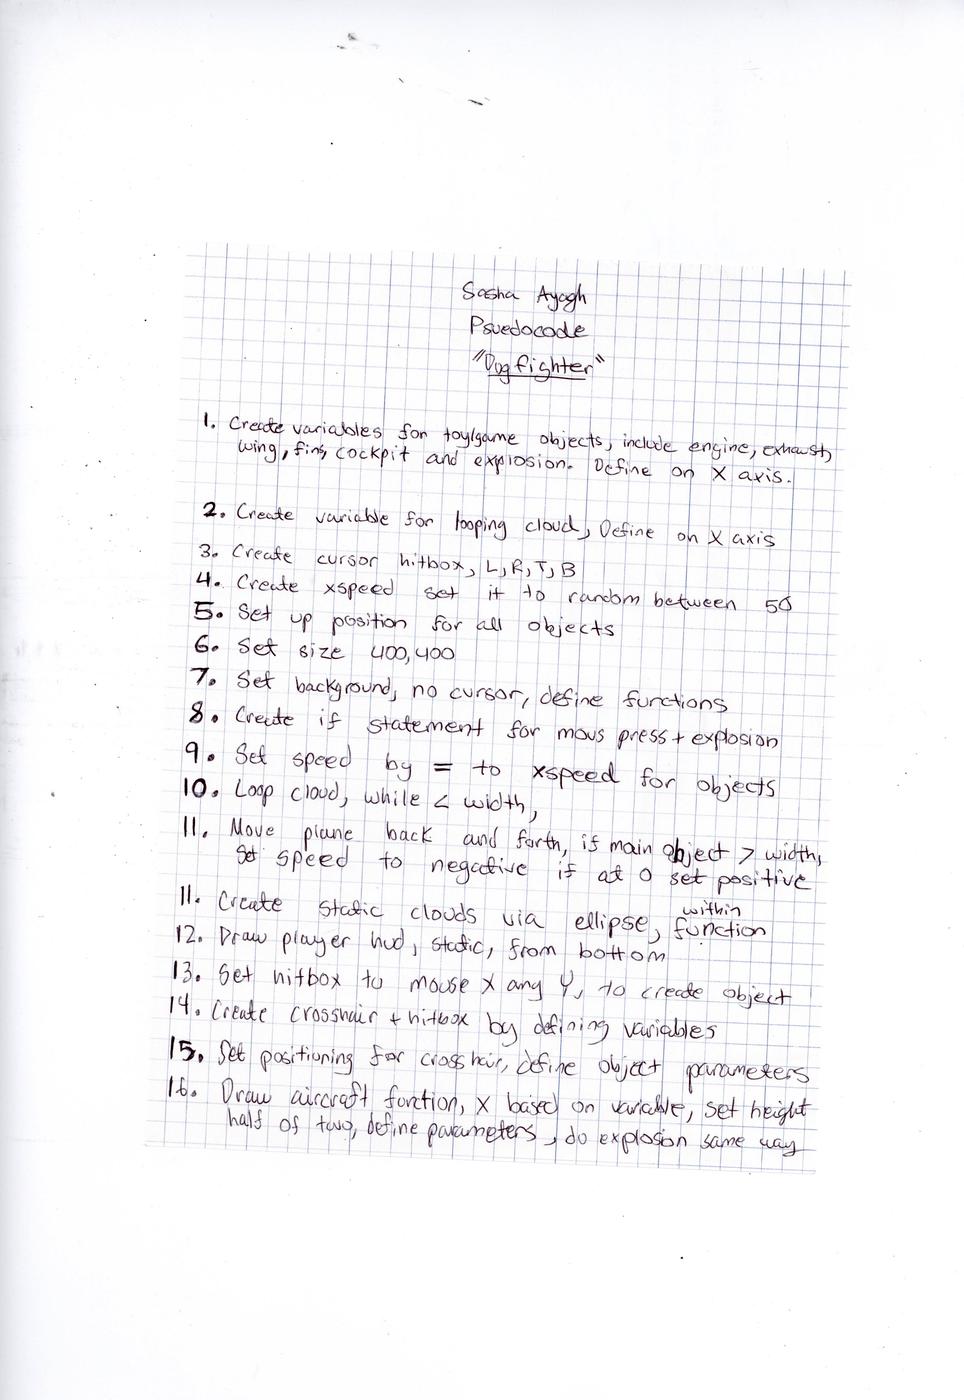 Sasha Ayagh
Psuedocode
"Dogfighter"
1. Create variables for toy/game objects, include engine, exhaust,
wing, fins, cockpit and explosion. Define on X axis.
2. Create variable for looping cloud, Define on X axis
3. Create cursor hitbox, L, R, T, B
4. Create xspeed set it to random between 50
5. Set up position for all objects
6. Set size 400,400
7. Set background, no cursor, define functions
8. Create if statement for mous press + explosion
9. Set speed by = to xspeed for objects
10. Loop cloud, while < width,
11. Move plane back and forth, if main object > width,
Set speed to negative if at 0 set positive
11. Create static clouds via ellipse, within function
12. Draw player hud, static, from bottom
13. Set hitbox to mouse X any Y, to create object
14. Create crosshair + hitbox by defining variables
15. Set positioning for crosshair, define object parameters
16. Draw aircraft function, X based on variable, set height
half of two, define parameters, do explosion same way